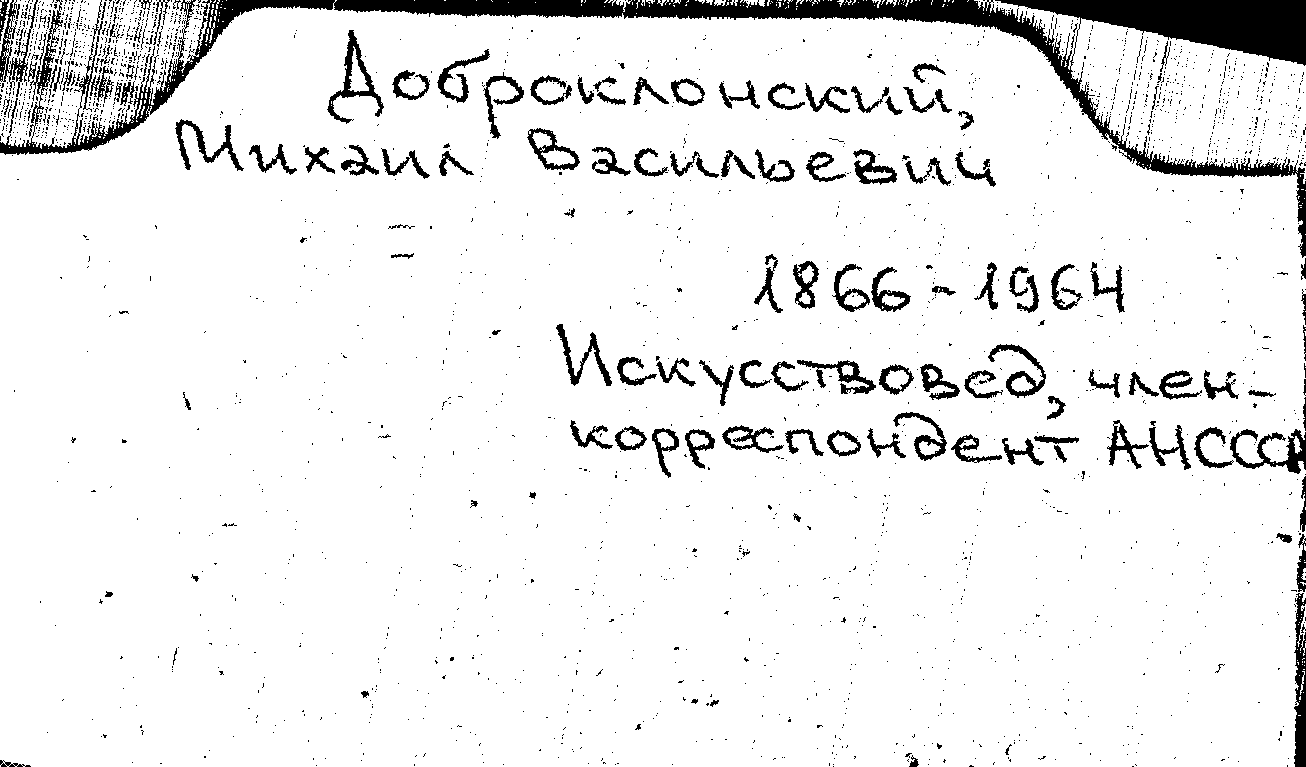 Доброклонский,
Михаил Васильевич
1866-1964
Искусствовед, член-
корреспондент АНСССР